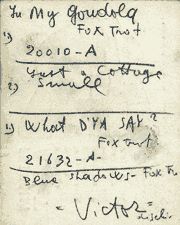 In My Gondola
Fox Trot
1)
20010-A
Just a Cottage
Small
2)
1) What D'YA SAY?
Fox Trot
21632-A-
Blue Shadows - Fox Tr.
- Victor -